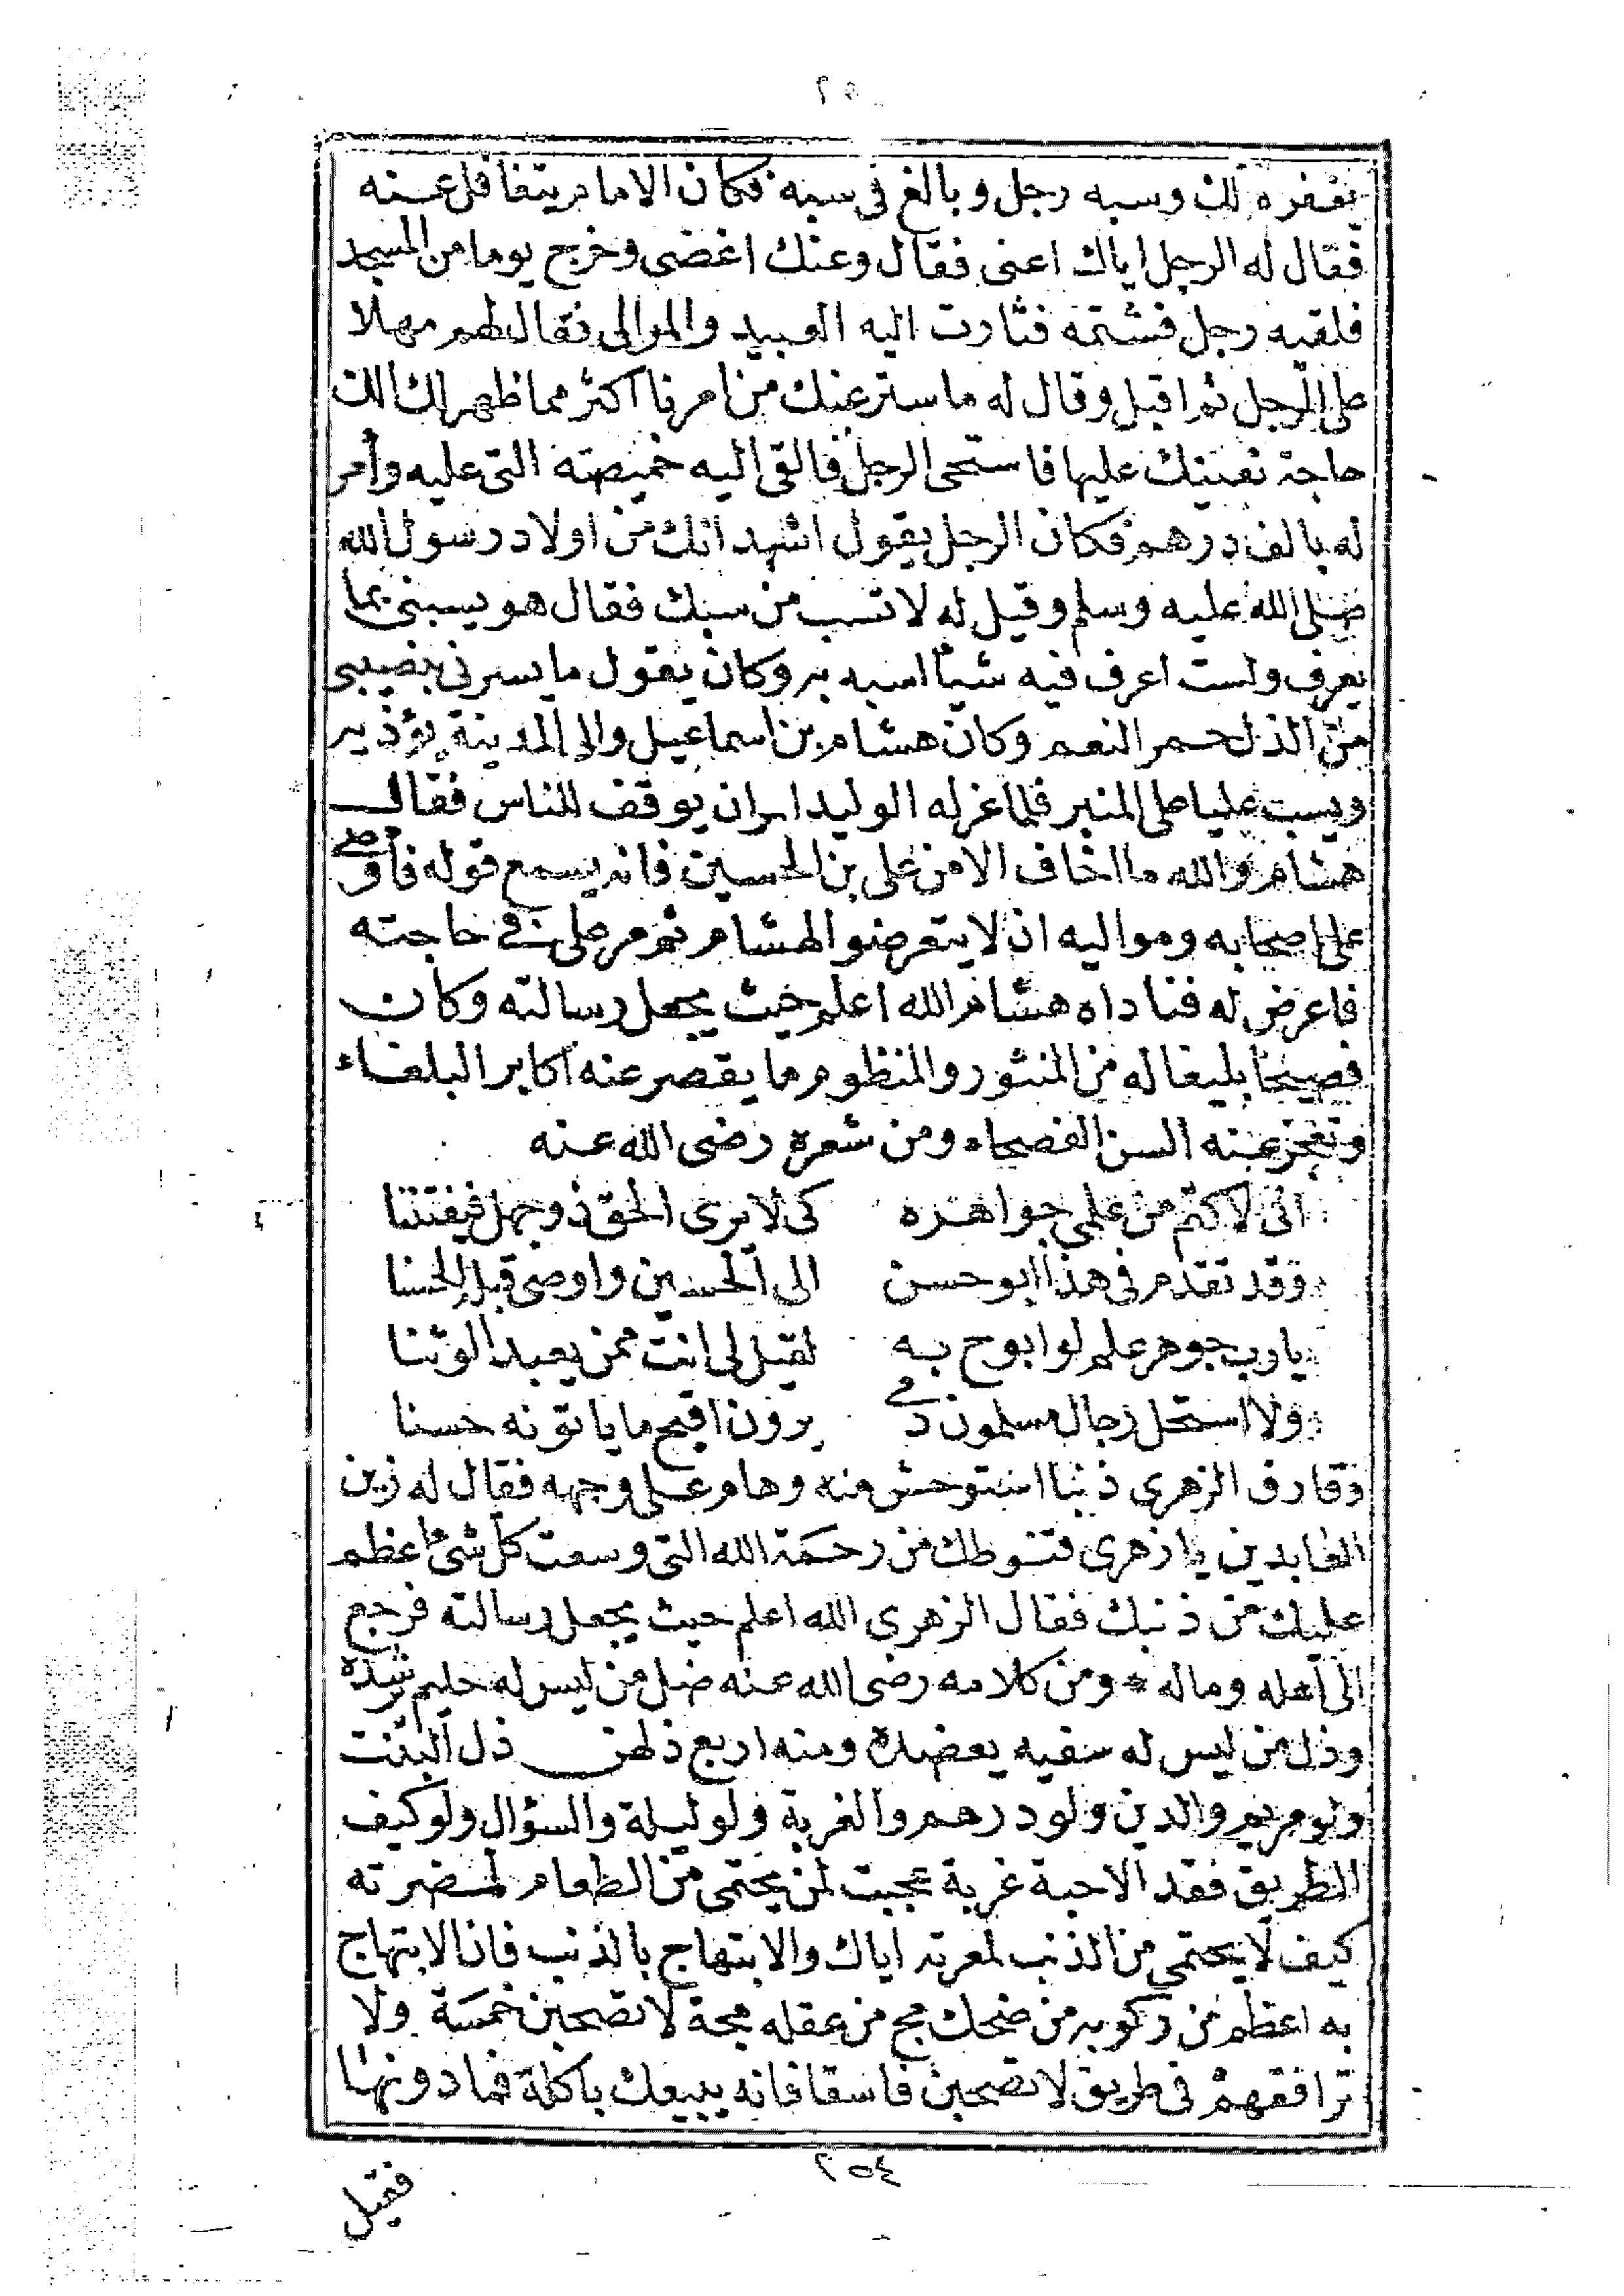 ٢٥
يغفره لك وسبه رجل وبالغ في سبه فكان الامام يتغافل عنه
فقال له الرجل اياك اعنى فقال وعنك اغضى وخرج يوما من المسجد
فلقيه رجل فشتمه فثارت اليه العبيد والموالى فقال لهم مهلا
على الرجل ثم اقبل وقال له ما ستر عنك من امرنا اكثر مما ظهر لك الك
حاجة نعينك عليها فاستحى الرجل فالقى اليه خميصته التى عليه وأمر
له بالف درهم فكان الرجل يقول اشهد انك من اولاد رسول الله
صلى الله عليه وسلم وقيل له لا تسب من سبك فقال هو يسبنى بما
يعرف ولست اعرف فيه شيأ اسبه به وكان يقول ما يسرنى بنصيبى
من الذل حمر النعم وكان هشام بن اسماعيل والى المدينة يؤذيه
ويسب عليا على المنبر فلما عزله الوليد امر ان يوقف للناس فقال
هشام والله ما اخاف الا من على بن الحسين فانه يسمع قوله فأوصى
على اصحابه ومواليه ان لا يتعرضوا لهشام ثم مر على فى حاجته
فاعرض له فناداه هشام الله اعلم حيث يجعل رسالته وكان
فصيحا بليغا له من المنثور والمنظوم ما يقصر عنه اكابر البلغاء
وتعجز عنه السن الفصحاء ومن شعره رضى الله عنه
انى لاكتم من علمى جواهره كى لا يرى الحق ذو جهل فيفتتنا
وقد تقدم فى هذا ابو حسن الى الحسين واوصى قبل الحسنا
يا رب جوهر علم لو ابوح به لقيل لى انت ممن يعبد الوثنا
ولا استحل رجال مسلمون دمى يرون اقبح ما يأتونه حسنا
وقارف الزهرى ذنبا استوحش منه وهام على وجهه فقال له زين
العابدين يا زهرى قنوطك من رحمة الله التى وسعت كل شئ اعظم
عليك من ذنبك فقال الزهرى الله اعلم حيث يجعل رسالته فرجع
الى اهله وماله * ومن كلامه رضى الله عنه ضل من ليس له حليم يرشده
وذل من ليس له سفيه يعضده ومنه اربع ذلهن ذل البنت
ولو مريم والدين ولو درهم والغربة ولو ليلة والسؤال ولو كيف
الطريق فقد الاحبة غربة عجبت لمن يحتمى من الطعام لمضرته
كيف لا يحتمى من الذنب لمعرته اياك والابتهاج بالذنب فان الابتهاج
به اعظم من ركوبه من ضحك مج من عقله مجة لا تصحبن خمسة ولا
ترافقهم فى طريق لا تصحبن فاسقا فانه يبيعك باكلة فما دونها
٢٥٤
فقيل